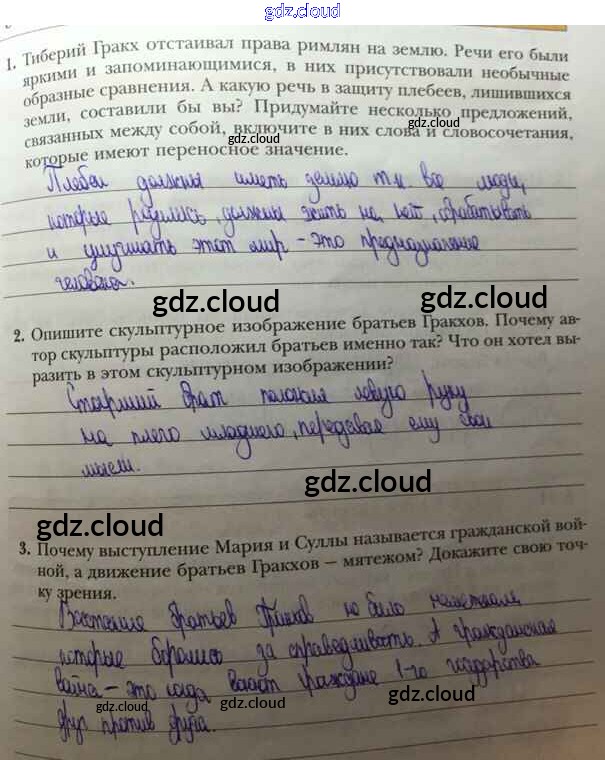 gdz.cloud
1. Тиберий Гракх отстаивал права римлян на землю. Речи его были
яркими и запоминающимися, в них присутствовали необычные
образные сравнения. А какую речь в защиту плебеев, лишившихся
земли, составили бы вы? Придумайте несколько предложений,
gdz.cloud
связанных между собой, включите в них слова и словосочетания,
которые имеют переносное значение.
Плебеи должны иметь землю т.к. все люди,
которые родились, должны жить на ней, обрабатывать
и улучшать этот мир – это предназначение
человека.
gdz.cloud
gdz.cloud
2. Опишите скульптурное изображение братьев Гракхов. Почему ав-
тор скульптуры расположил братьев именно так? Что он хотел вы-
разить в этом скульптурном изображении?
Старший брат положил левую руку
на плечо младшего, передавая ему свои
мысли.
gdz.cloud
gdz.cloud
3. Почему выступление Мария и Суллы называется гражданской вой-
ной, а движение братьев Гракхов – мятежом? Докажите свою точ-
ку зрения.
Восстание братьев Гракхов но было мятежом
которые боролись за справедливость. А гражданская
война – это когда воюют граждане 1-го государства
друг против друга.
gdz.cloud
gdz.cloud